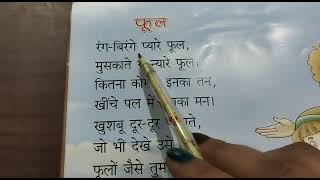 फूल
रंग-बिरंगे प्यारे फूल,
मुसकाते न्यारे फूल।
कितना इनका तन,
खींचे पल में मन।
खुशबू दूर-दूर
जो भी देखे उसे
फूलों जैसे तुम